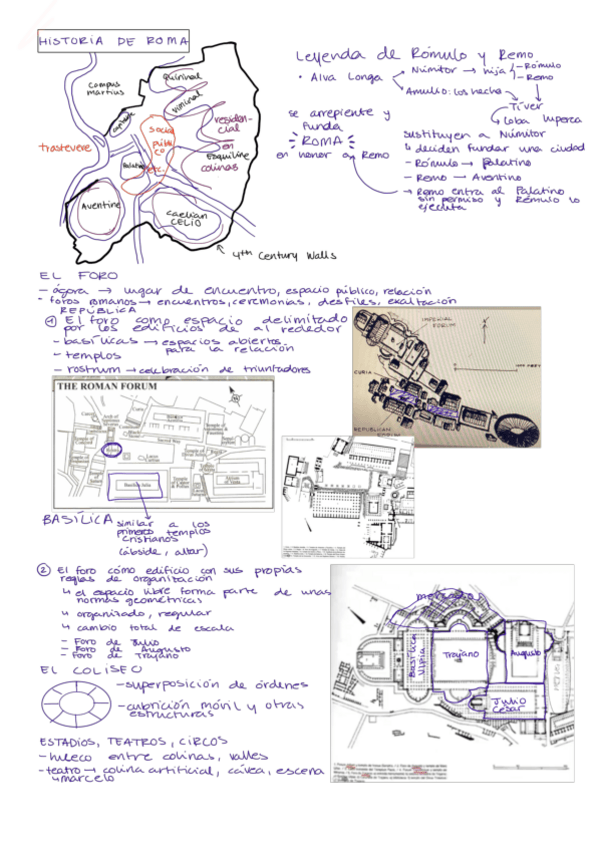 HISTORIA DE ROMA
Campus
Martius
Quirinal
Viminal
Capitoline
social
público
etc.
residen-
cial
en
colinas
Esquiline
trastevere
Palatine
Aventine
Caelian
CELIO
4th Century Walls
Leyenda de Rómulo y Remo
• Alva Longa
Númitor → hija
- Rómulo
- Remo
Amulio: los hecha
Tíver
↳ Loba luperca
sustituyen a Númitor
↳ deciden fundar una ciudad
- Rómulo → Palatino
- Remo → Aventino
→ Remo entra al Palatino
sin permiso y Rómulo lo
ejecuta
se arrepiente y
funda
ROMA
en honor a Remo
EL FORO
- ágora → lugar de encuentro, espacio público, relación
- foros romanos → encuentros, ceremonias, desfiles, exaltación
REPÚBLICA
① El foro como espacio delimitado
por los edificios de al rededor
- basílicas → espacios abiertos
para la relación
- templos
- rostrum → celebración de triunfadores
IMPERIAL
FORUM
CURIA
REPUBLICAN
FORUM
N
THE ROMAN FORUM
Curia
Sacred Way
Basilica Julia
BASÍLICA
similar a los
primeros templos
cristianos
(ábside, altar)
② El foro cómo edificio con sus propias
reglas de organización
↳ el espacio libre forma parte de unas
normas geométricas
↳ organizado, regular
↳ cambio total de escala
- Foro de Julio
- Foro de Augusto
- Foro de Trajano
mercados
Basílica
Ulpia
Trajano
Augusto
Julio
César
EL COLISEO
- superposición de órdenes
- cubrición móvil y otras
estructuras
ESTADIOS, TEATROS, CIRCOS
- hueco entre colinas, valles
- teatro → colina artificial, cávea, escena
↳ marcelo